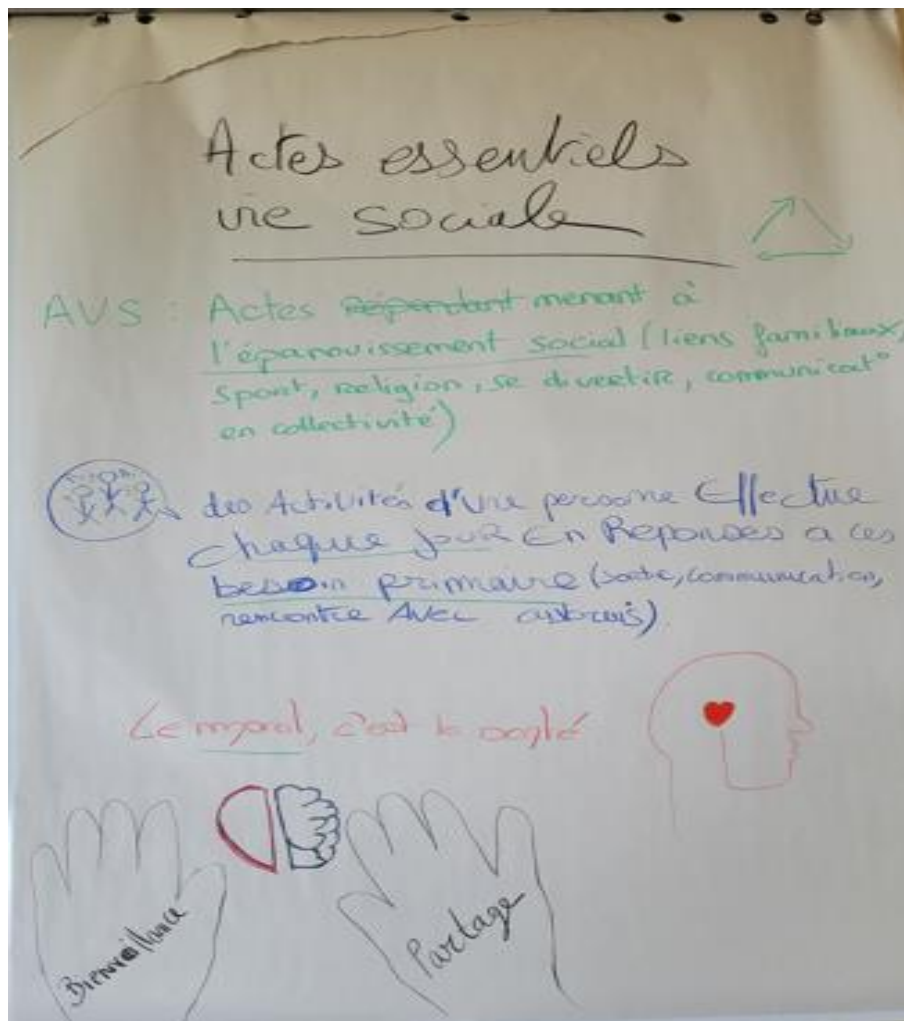 Actes essentiels
vie sociale
AVS : Actes Répondant menant à
l'épanouissement social (liens familiaux,
Sport, religion, se divertir, communicat°
en collectivité)
des Activités d'une personne Effectue
chaque jour En Reponses a ces
besoin primaire (sortie, communication,
rencontre Avec autruis).
Le moral, c'est la santé
Bienveillance
Partage